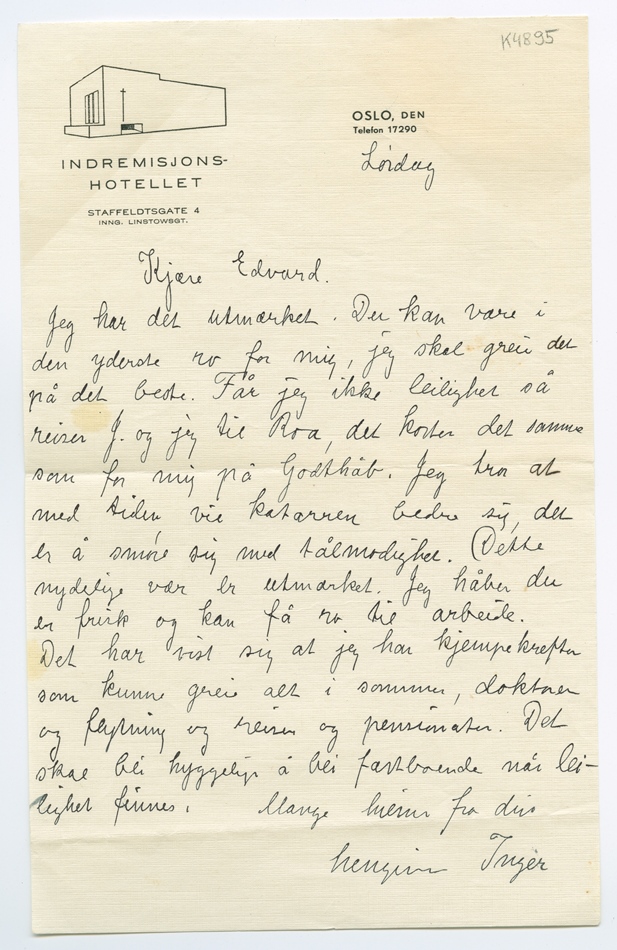 K4895
OSLO, DEN
Telefon 17290
Lørdag
INDREMISJONS-
HOTELLET
STAFFELDTSGATE 4
INNG. LINSTOWSGT.
Kjære Edvard.
Jeg har det utmærket. Du kan være i
den yderste ro for mig, jeg skal greie det
på det beste. Får jeg ikke leilighet så
reiser J. og jeg til Roa, det koster det samme
som for mig på Godthåb. Jeg tror at
med tiden vil katarren bedre sig, det
er å smøre sig med tålmodighet. Dette
nydelige vær er utmærket. Jeg håber du
er frisk og kan få ro til arbeide.
Det har vist sig at jeg har kjempekrefter
som kunne greie alt i sommer, doktorer
og flytning og reiser og pensionater. Det
skal bli hyggelig å bli fastboende når lei-
lighet finnes. Mange hilsner fra din
hengivne Inger